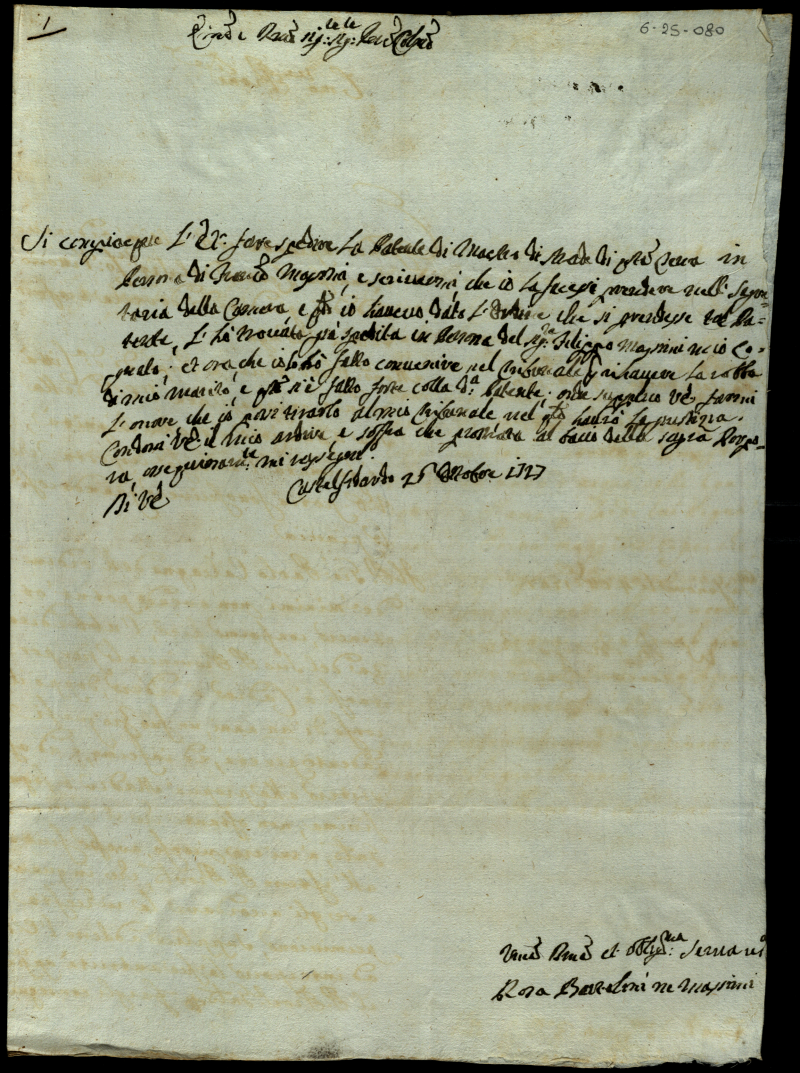 1
6-25-080
Em.o e Rmo Sig.r Sig.r
Si compiacque L'E.V. fare spedire La Patente di Mastro di strada di q.ta terra in
Persona di Fran.co Massimi, e scrivermi, che io La facessi prendere nella Segre=
taria della Camera, e q.do io havevo dato L'Ordine che si prendesse tal Pa=
tente, L'hò trovata già spedita in Persona del Sig.r Filippo Massimi mio Co=
gnato; et ora che io l'hò fatto convenire nel Tribunale p. rihavere La robba
di mio marito, e si è fatto forte colla d.a Patente: onde supplico V.E. farmi
L'onore che io possi tirarlo al mio Tribunale nel q.le haverò La giustizia.
Condoni V.E. il mio ardire, e soffra che prostrata al bacio della Sagra Porpo=
ra, ossequiosam.te mi rassegno.
Di V.E. Castelfidardo 25 Ottobre 1727
Um.a Dma et Obblig.ma Serva v.a
Rosa Bartolini ne Massimi